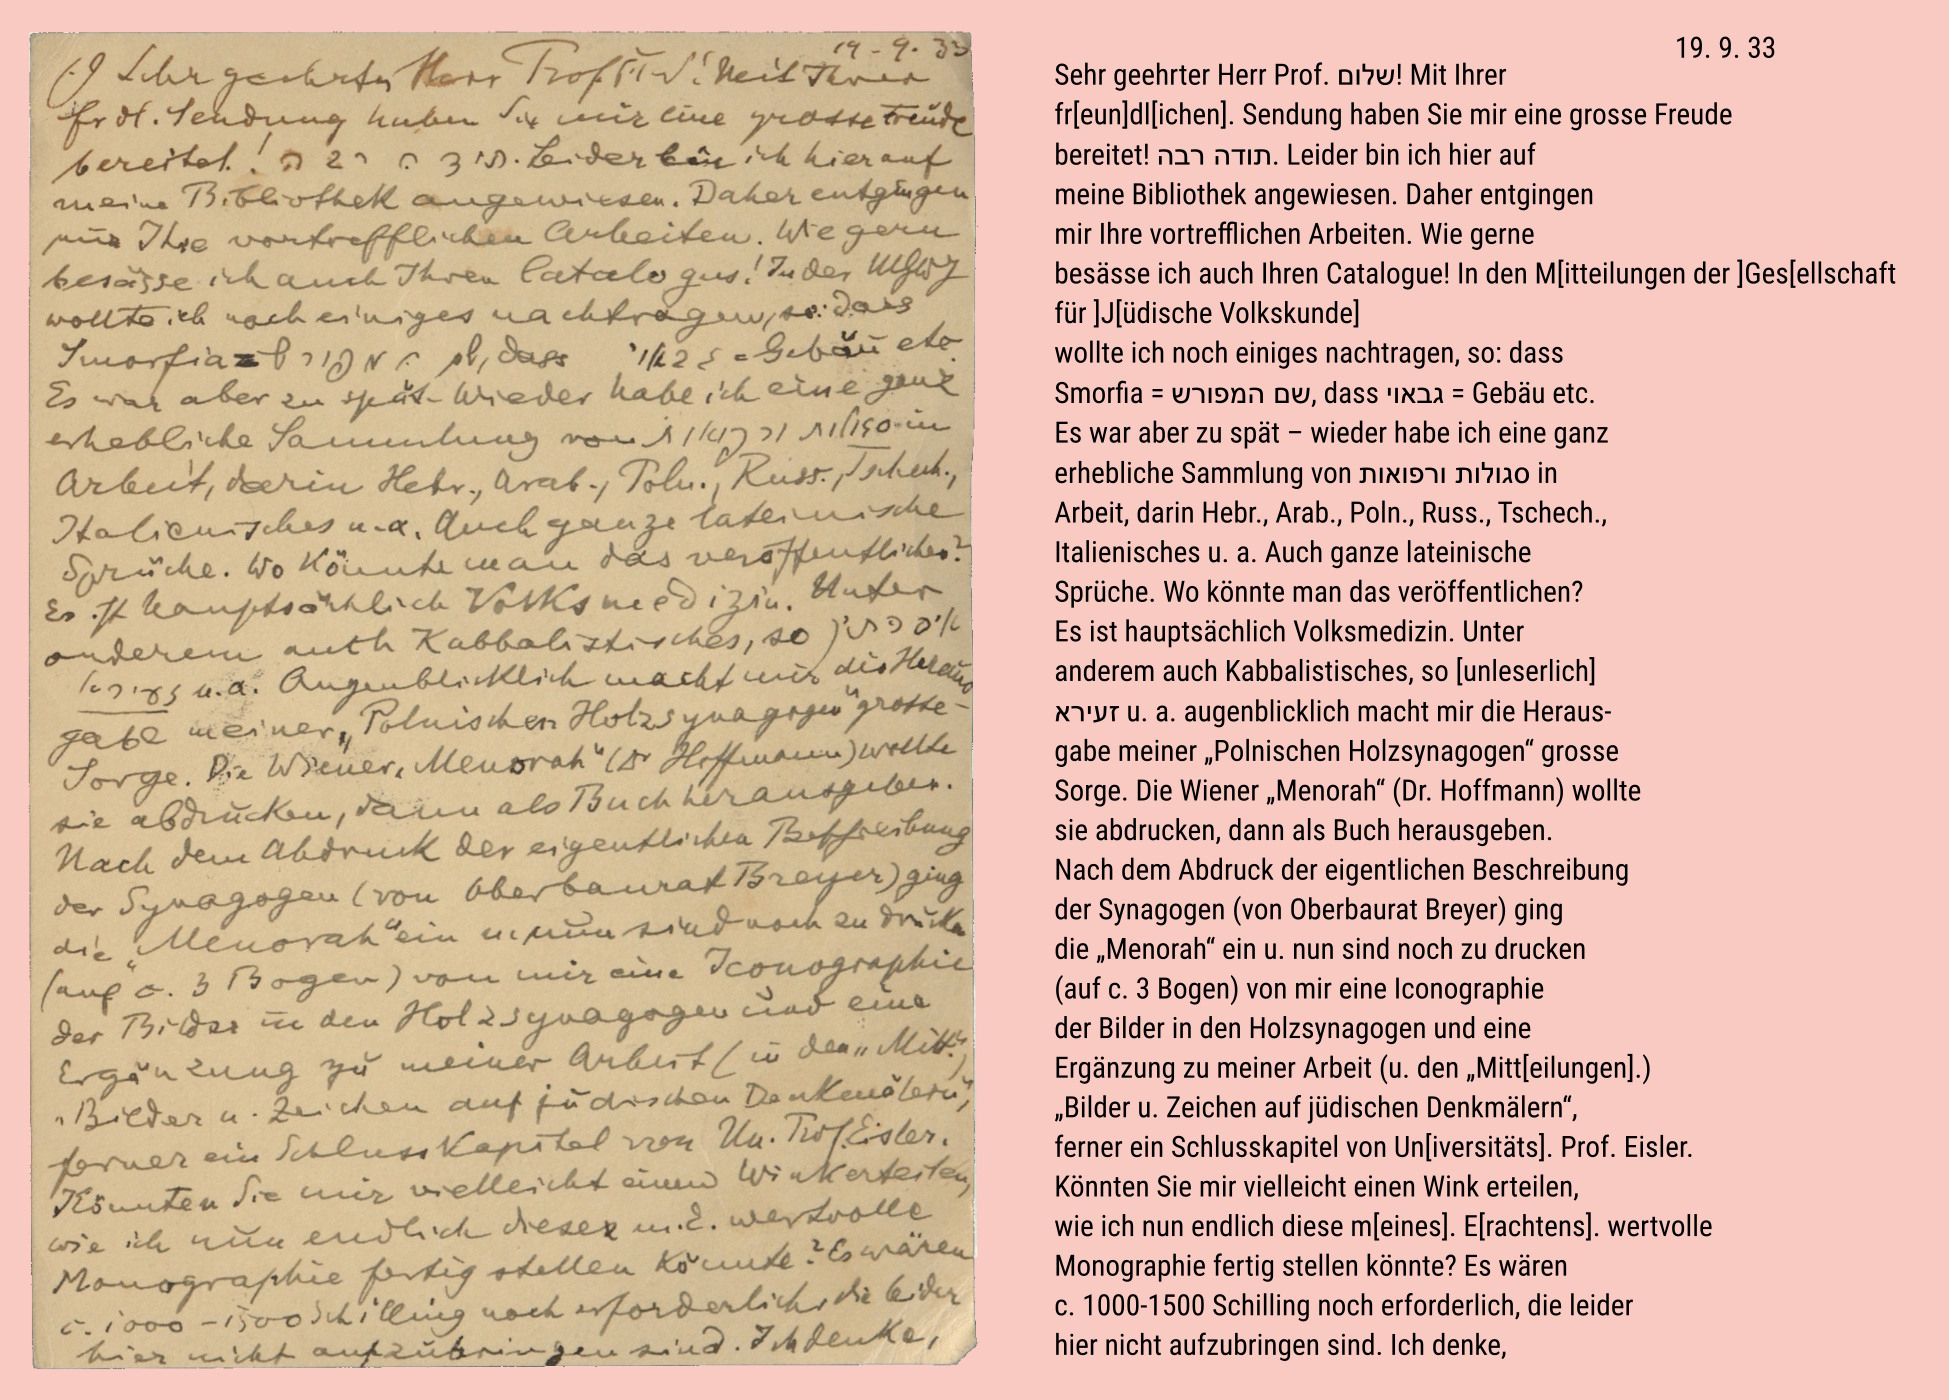 19-9. 33
Sehr geehrter Herr Prof. שלום! Mit Ihrer
frdl. Sendung haben Sie mir eine grosse Freude
bereitet! תודה רבה. Leider bin ich hier auf
meine Bibliothek angewiesen. Daher entgingen
mir Ihre vortrefflichen Arbeiten. Wie gern
besässe ich auch Ihren Catalogus! In der MGWJ
wollte ich noch einiges nachtragen, so: dass
Smorfia = שם המפורש, dass גבאוי = Gebäu etc.
Es war aber zu spät – Wieder habe ich eine ganz
erhebliche Sammlung von סגולות ורפואות in
Arbeit, darin Hebr., Arab., Poln., Russ., Tschech.,
Italienisches u. a. Auch ganze lateinische
Sprüche. Wo könnte man das veröffentlichen?
Es ist hauptsächlich Volksmedizin. Unter
anderem auch Kabbalistisches, so
זעירא u. a. Augenblicklich macht mir die Heraus
gabe meiner „Polnischen Holzsynagogen" grosse
Sorge. Die Wiener „Menorah" (Dr Hoffmann) wollte
sie abdrucken, dann als Buch herausgeben.
Nach dem Abdruck der eigentlichen Beschreibung
der Synagogen (von Oberbaurat Breyer) ging
die „Menorah" ein u. nun sind noch zu drucken
(auf c. 3 Bogen) von mir eine Iconographie
der Bilder in den Holzsynagogen und eine
Ergänzung zu meiner Arbeit (in den „Mitt.")
„Bilder u. Zeichen auf jüdischen Denkmälern",
ferner ein Schlusskapitel von Un. Prof. Eisler.
Könnten Sie mir vielleicht einen Wink erteilen,
wie ich nun endlich diese m. E. wertvolle
Monographie fertig stellen könnte? Es wären
c. 1000-1500 Schilling noch erforderlich, die leider
hier nicht aufzubringen sind. Ich denke,
19. 9. 33
Sehr geehrter Herr Prof. שלום! Mit Ihrer
fr[eun]dl[ichen]. Sendung haben Sie mir eine grosse Freude
bereitet! תודה רבה. Leider bin ich hier auf
meine Bibliothek angewiesen. Daher entgingen
mir Ihre vortrefflichen Arbeiten. Wie gerne
besässe ich auch Ihren Catalogue! In den M[itteilungen der ]Ges[ellschaft
für ]J[üdische Volkskunde]
wollte ich noch einiges nachtragen, so: dass
Smorfia = שם המפורש, dass גבאוי = Gebäu etc.
Es war aber zu spät – wieder habe ich eine ganz
erhebliche Sammlung von סגולות ורפואות in
Arbeit, darin Hebr., Arab., Poln., Russ., Tschech.,
Italienisches u. a. Auch ganze lateinische
Sprüche. Wo könnte man das veröffentlichen?
Es ist hauptsächlich Volksmedizin. Unter
anderem auch Kabbalistisches, so [unleserlich]
זעירא u. a. augenblicklich macht mir die Heraus-
gabe meiner „Polnischen Holzsynagogen“ grosse
Sorge. Die Wiener „Menorah“ (Dr. Hoffmann) wollte
sie abdrucken, dann als Buch herausgeben.
Nach dem Abdruck der eigentlichen Beschreibung
der Synagogen (von Oberbaurat Breyer) ging
die „Menorah“ ein u. nun sind noch zu drucken
(auf c. 3 Bogen) von mir eine Iconographie
der Bilder in den Holzsynagogen und eine
Ergänzung zu meiner Arbeit (u. den „Mitt[eilungen].)
„Bilder u. Zeichen auf jüdischen Denkmälern“,
ferner ein Schlusskapitel von Un[iversitäts]. Prof. Eisler.
Könnten Sie mir vielleicht einen Wink erteilen,
wie ich nun endlich diese m[eines]. E[rachtens]. wertvolle
Monographie fertig stellen könnte? Es wären
c. 1000-1500 Schilling noch erforderlich, die leider
hier nicht aufzubringen sind. Ich denke,